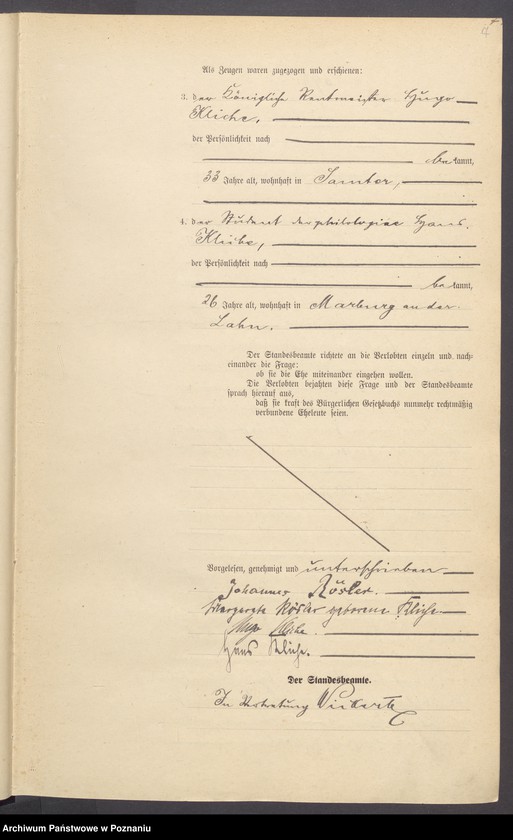 4
Als Zeugen waren zugezogen und erschienen:
3. der Königliche Rentmeister Hugo
Kliche,
der Persönlichkeit nach
bekannt,
33 Jahre alt, wohnhaft in Samter,
4. der Student der philologie Hans
Kliche,
der Persönlichkeit nach
bekannt,
26 Jahre alt, wohnhaft in Marburg an der
Lahn.
Der Standesbeamte richtete an die Verlobten einzeln und nach-
einander die Frage:
ob sie die Ehe miteinander eingehen wollen.
Die Verlobten bejahten diese Frage und der Standesbeamte
sprach hierauf aus,
daß sie kraft des Bürgerlichen Gesetzbuchs nunmehr rechtmäßig
verbundene Eheleute seien.
Vorgelesen, genehmigt und unterschrieben
Johannes Rösler.
Margarete Rösler geborene Kliche
Hugo Kliche.
Hans Kliche.
Der Standesbeamte.
In Vertretung
Archiwum Państwowe w Poznaniu